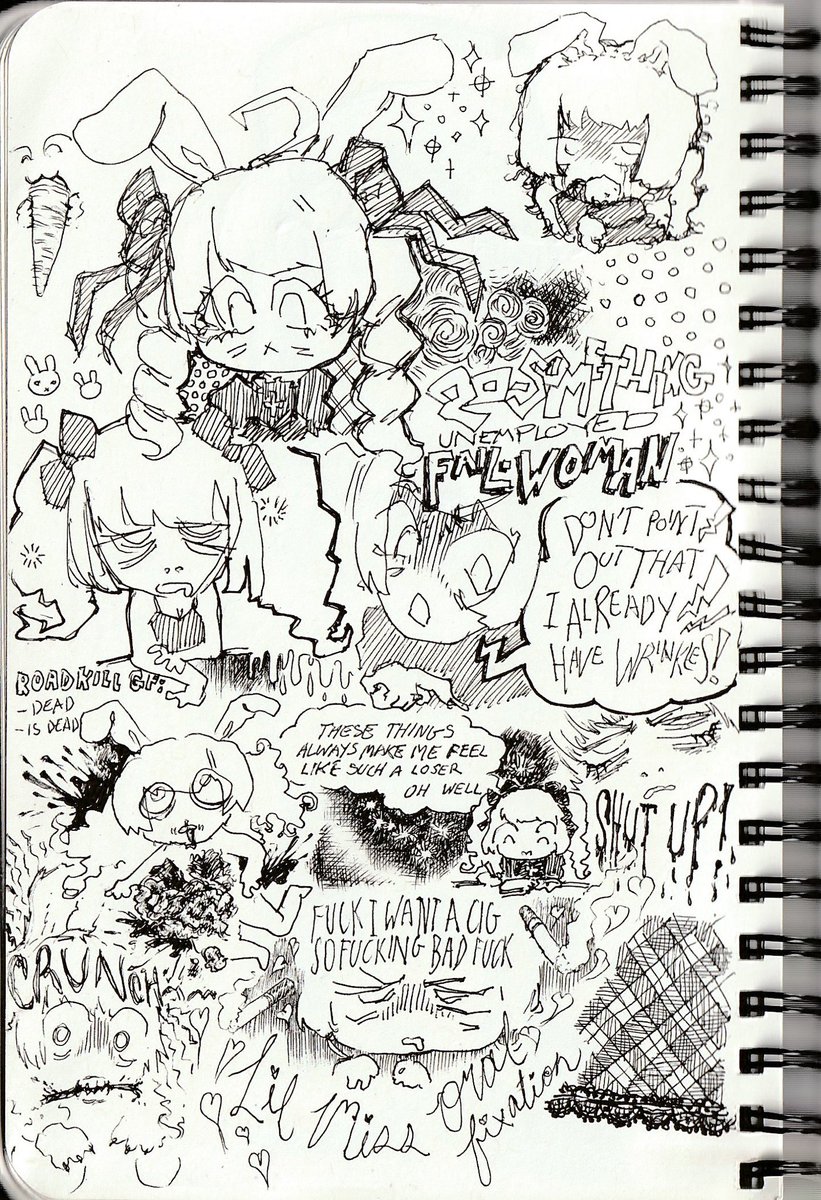 20-SOMETHING
UNEMPLOYED
FAIL-WOMAN
DON'T POINT
OUT THAT
I ALREADY
HAVE WRINKLES!
ROADKILL GF:
- DEAD
- IS DEAD
THESE THINGS
ALWAYS MAKE ME FEEL
LIKE SUCH A LOSER
OH WELL
SHUT UP!
FUCK I WANT A CIG
SO FUCKING BAD FUCK
CRUNCH
Lil Miss oral
fixation